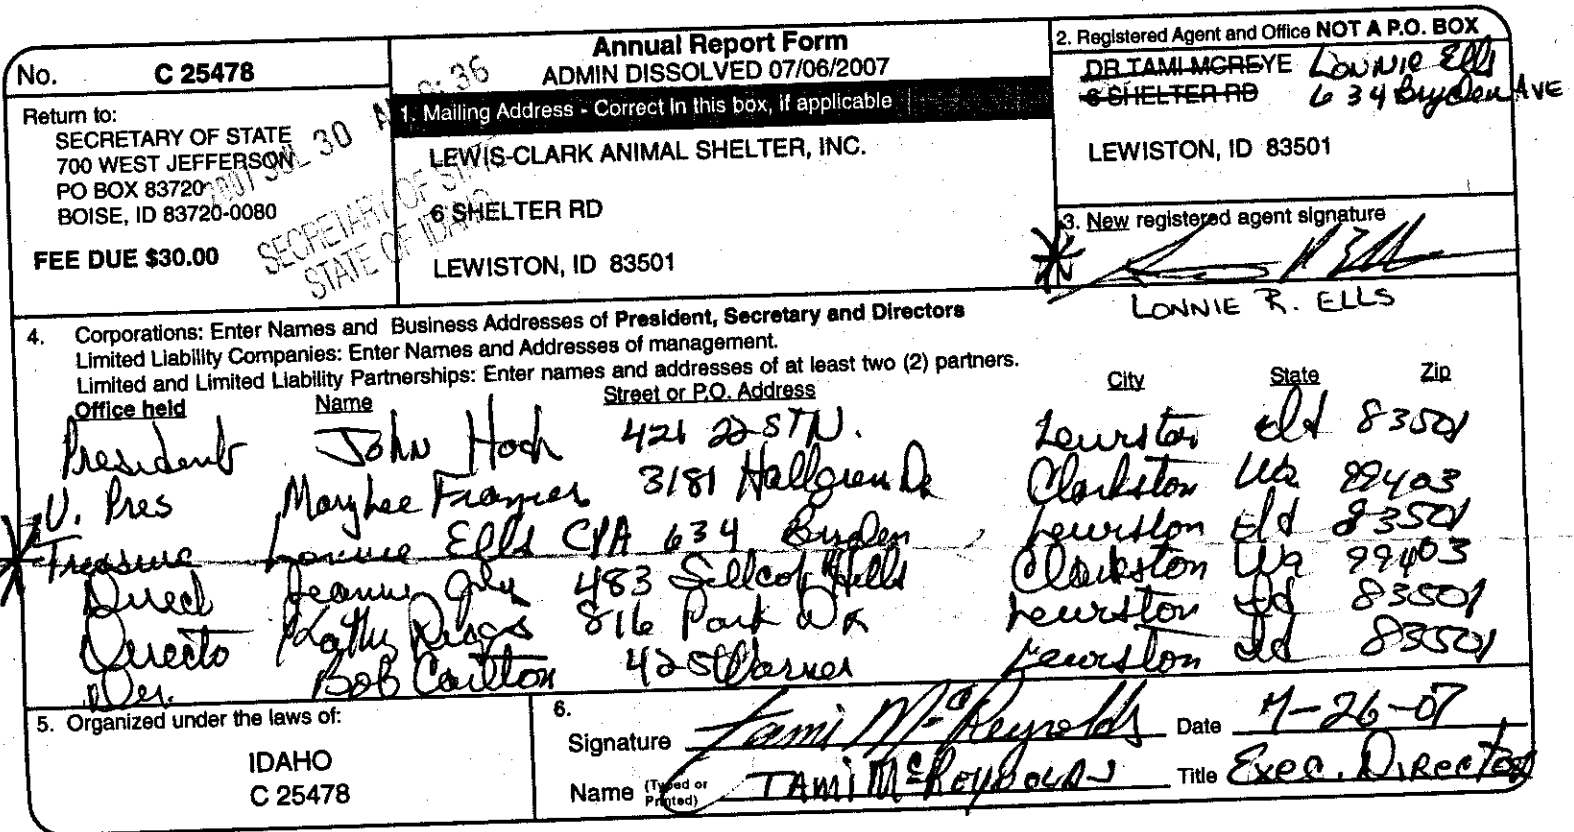 No. C 25478
Return to:
SECRETARY OF STATE
700 WEST JEFFERSON
PO BOX 83720
BOISE, ID 83720-0080
FEE DUE $30.00
2007 JUL 30 A
SECRETARY OF STATE
STATE OF IDAHO
Annual Report Form
ADMIN DISSOLVED 07/06/2007
1. Mailing Address - Correct In this box, if applicable
LEWIS-CLARK ANIMAL SHELTER, INC.
6 SHELTER RD
LEWISTON, ID 83501
2. Registered Agent and Office NOT A P.O. BOX
DR TAMI MCREYE Lonnie Ells
6 SHELTER RD 634 Bryden AVE
LEWISTON, ID 83501
3. New registered agent signature
LONNIE R. ELLS
4. Corporations: Enter Names and Business Addresses of President, Secretary and Directors
Limited Liability Companies: Enter Names and Addresses of management.
Limited and Limited Liability Partnerships: Enter names and addresses of at least two (2) partners.
Office held Name Street or P.O. Address City State Zip
President John Hoch 421 22 ST N. Lewiston Id 83501
V. Pres MaryLee Frazier 3181 Hallgren Dr Clarkston Wa 99403
Treasure Lonnie Ells CPA 634 Bryden Lewiston Id 83501
Direct Jeannie 483 Hills Clarkston Wa 99403
Directo Kathy 816 Park Dr Lewiston Id 83501
Dir. Bob 425 Warner Lewiston Id 83501
5. Organized under the laws of:
IDAHO
C 25478
6.
Signature Tami McReynolds Date 7-26-07
Name (Typed or Printed) TAMI McReynolds Title Exec. Director